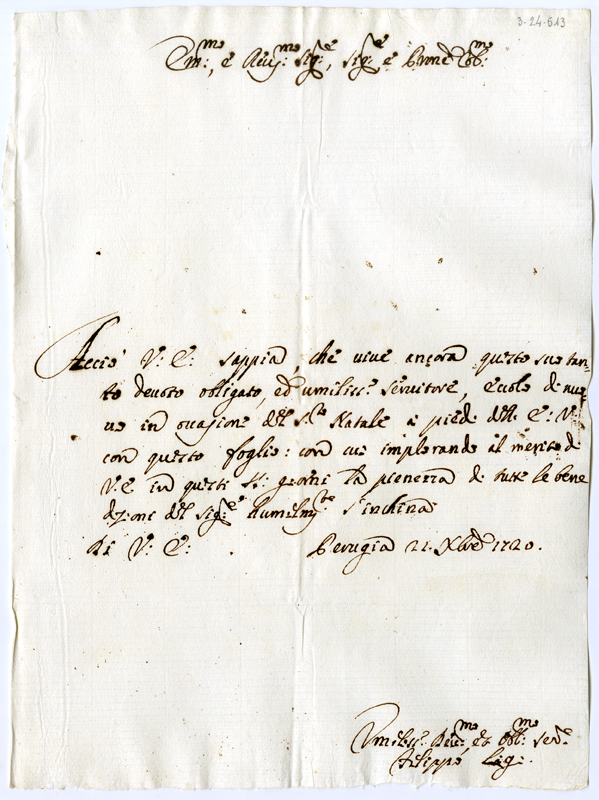 3-24-513
Em:mo, e Reu:mo Sig:e, Sig:e e Prone Col:mo
Acciò V: E: sappia, che viue ancora questo suo tan-
to deuoto obligato, ed umiliss:o seruitore, eccolo di nuo
uo in occasione del S:to Natale a piedi dell' E: V:
con questo foglio: con cui implorando il merito di
V: E in questi SS: giorni la pienezza di tutte le bene
dizioni del Sig:e humilm:te s'inchina
Di V: E: Perugia 21. Xbre 1720.
Umiliss:o Deu:mo et Obl:mo ser:e
Filippo